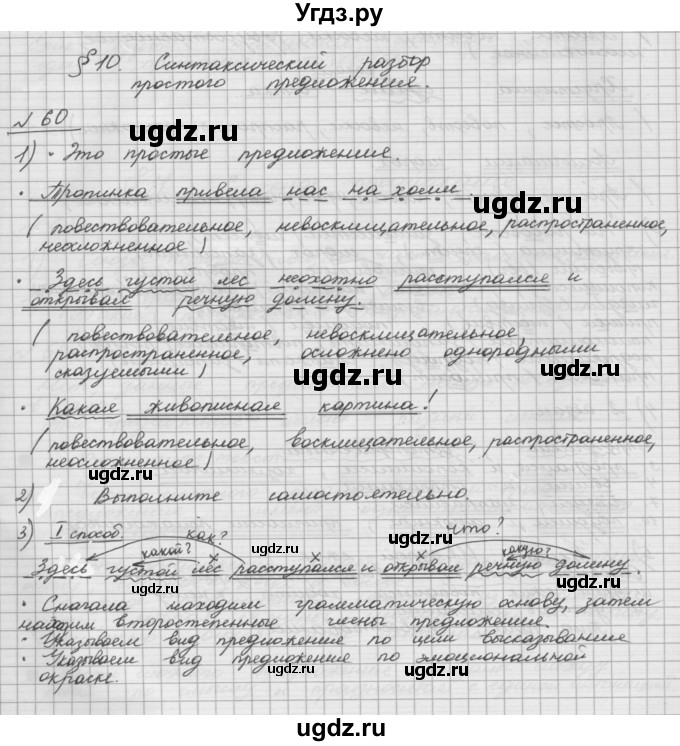 Угдз.ру
§ 10. Синтаксический разбор
простого предложения.
№ 60
ugdz.ru
ugdz.ru
1) • Это простые предложения.
• Тропинка привела нас на холм.
ugdz.ru
(повествовательное, невосклицательное, распространенное,
неосложненное)
ugdz.ru
• Здесь густой лес неохотно расступался и
открывал речную долину.
ugdz.ru
(повествовательное, невосклицательное,
распространенное, осложнено однородными
сказуемыми)
ugdz.ru
ugdz.ru
• Какая живописная картина!
ugdz.ru
(повествовательное, восклицательное, распространенное,
неосложненное)
ugdz.ru
2) Выполните самостоятельно.
ugdz.ru
3) I способ. как? что?
какой? х х х какую?
Здесь густой лес расступался и открывал речную долину.
ugdz.ru
• Сначала находим грамматическую основу, затем
находим второстепенные члены предложения.
• Указываем вид предложения по цели высказывания
ugdz.ru
• Указываем вид предложения по эмоциональной
окраске.
ugdz.ru
ugdz.ru